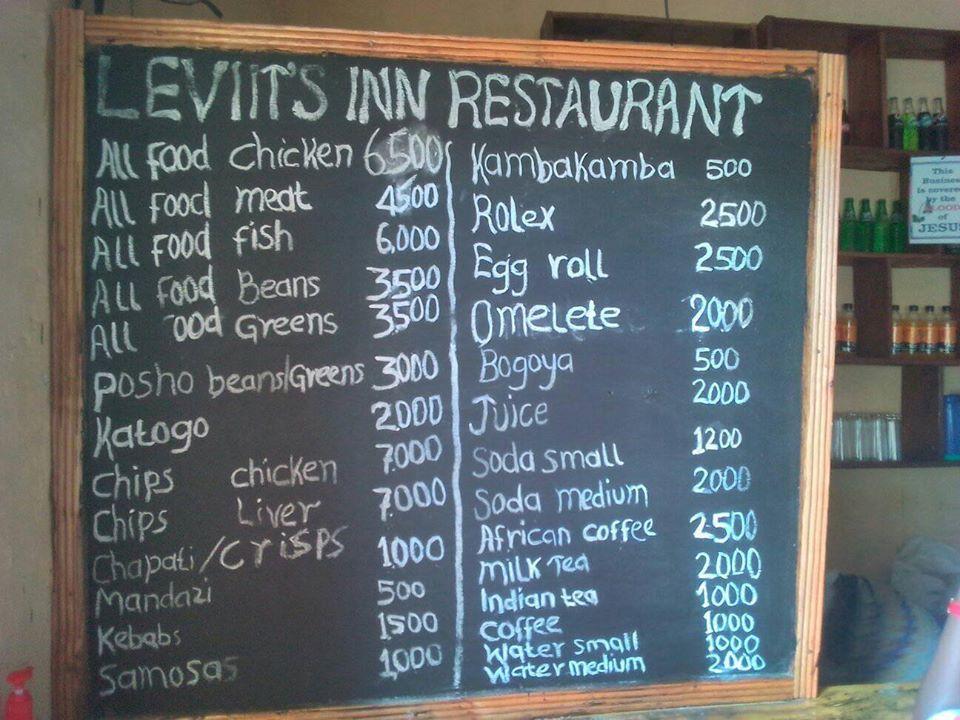 LEVIIT'S INN RESTAURANT
All Food chicken 6500
All Food meat 4500
All Food fish 6,000
All Food Beans 3500
All ood Greens 3500
Posho beans/Greens 3000
Katogo 2000
Chips chicken 7000
Chips Liver 7000
Chapati/Crisps 1000
Mandazi 500
Kebabs 1500
Samosas 1000
Kambakamba 500
Rolex 2500
Egg roll 2500
Omelete 2000
Bogoya 500
Juice 2000
Soda small 1200
Soda medium 2000
African coffee 2500
Milk Tea 2000
Indian tea 1000
Coffee 1000
Water small 1000
Water medium 2000
This
Business
is covered
by the
BLOOD
of
JESUS